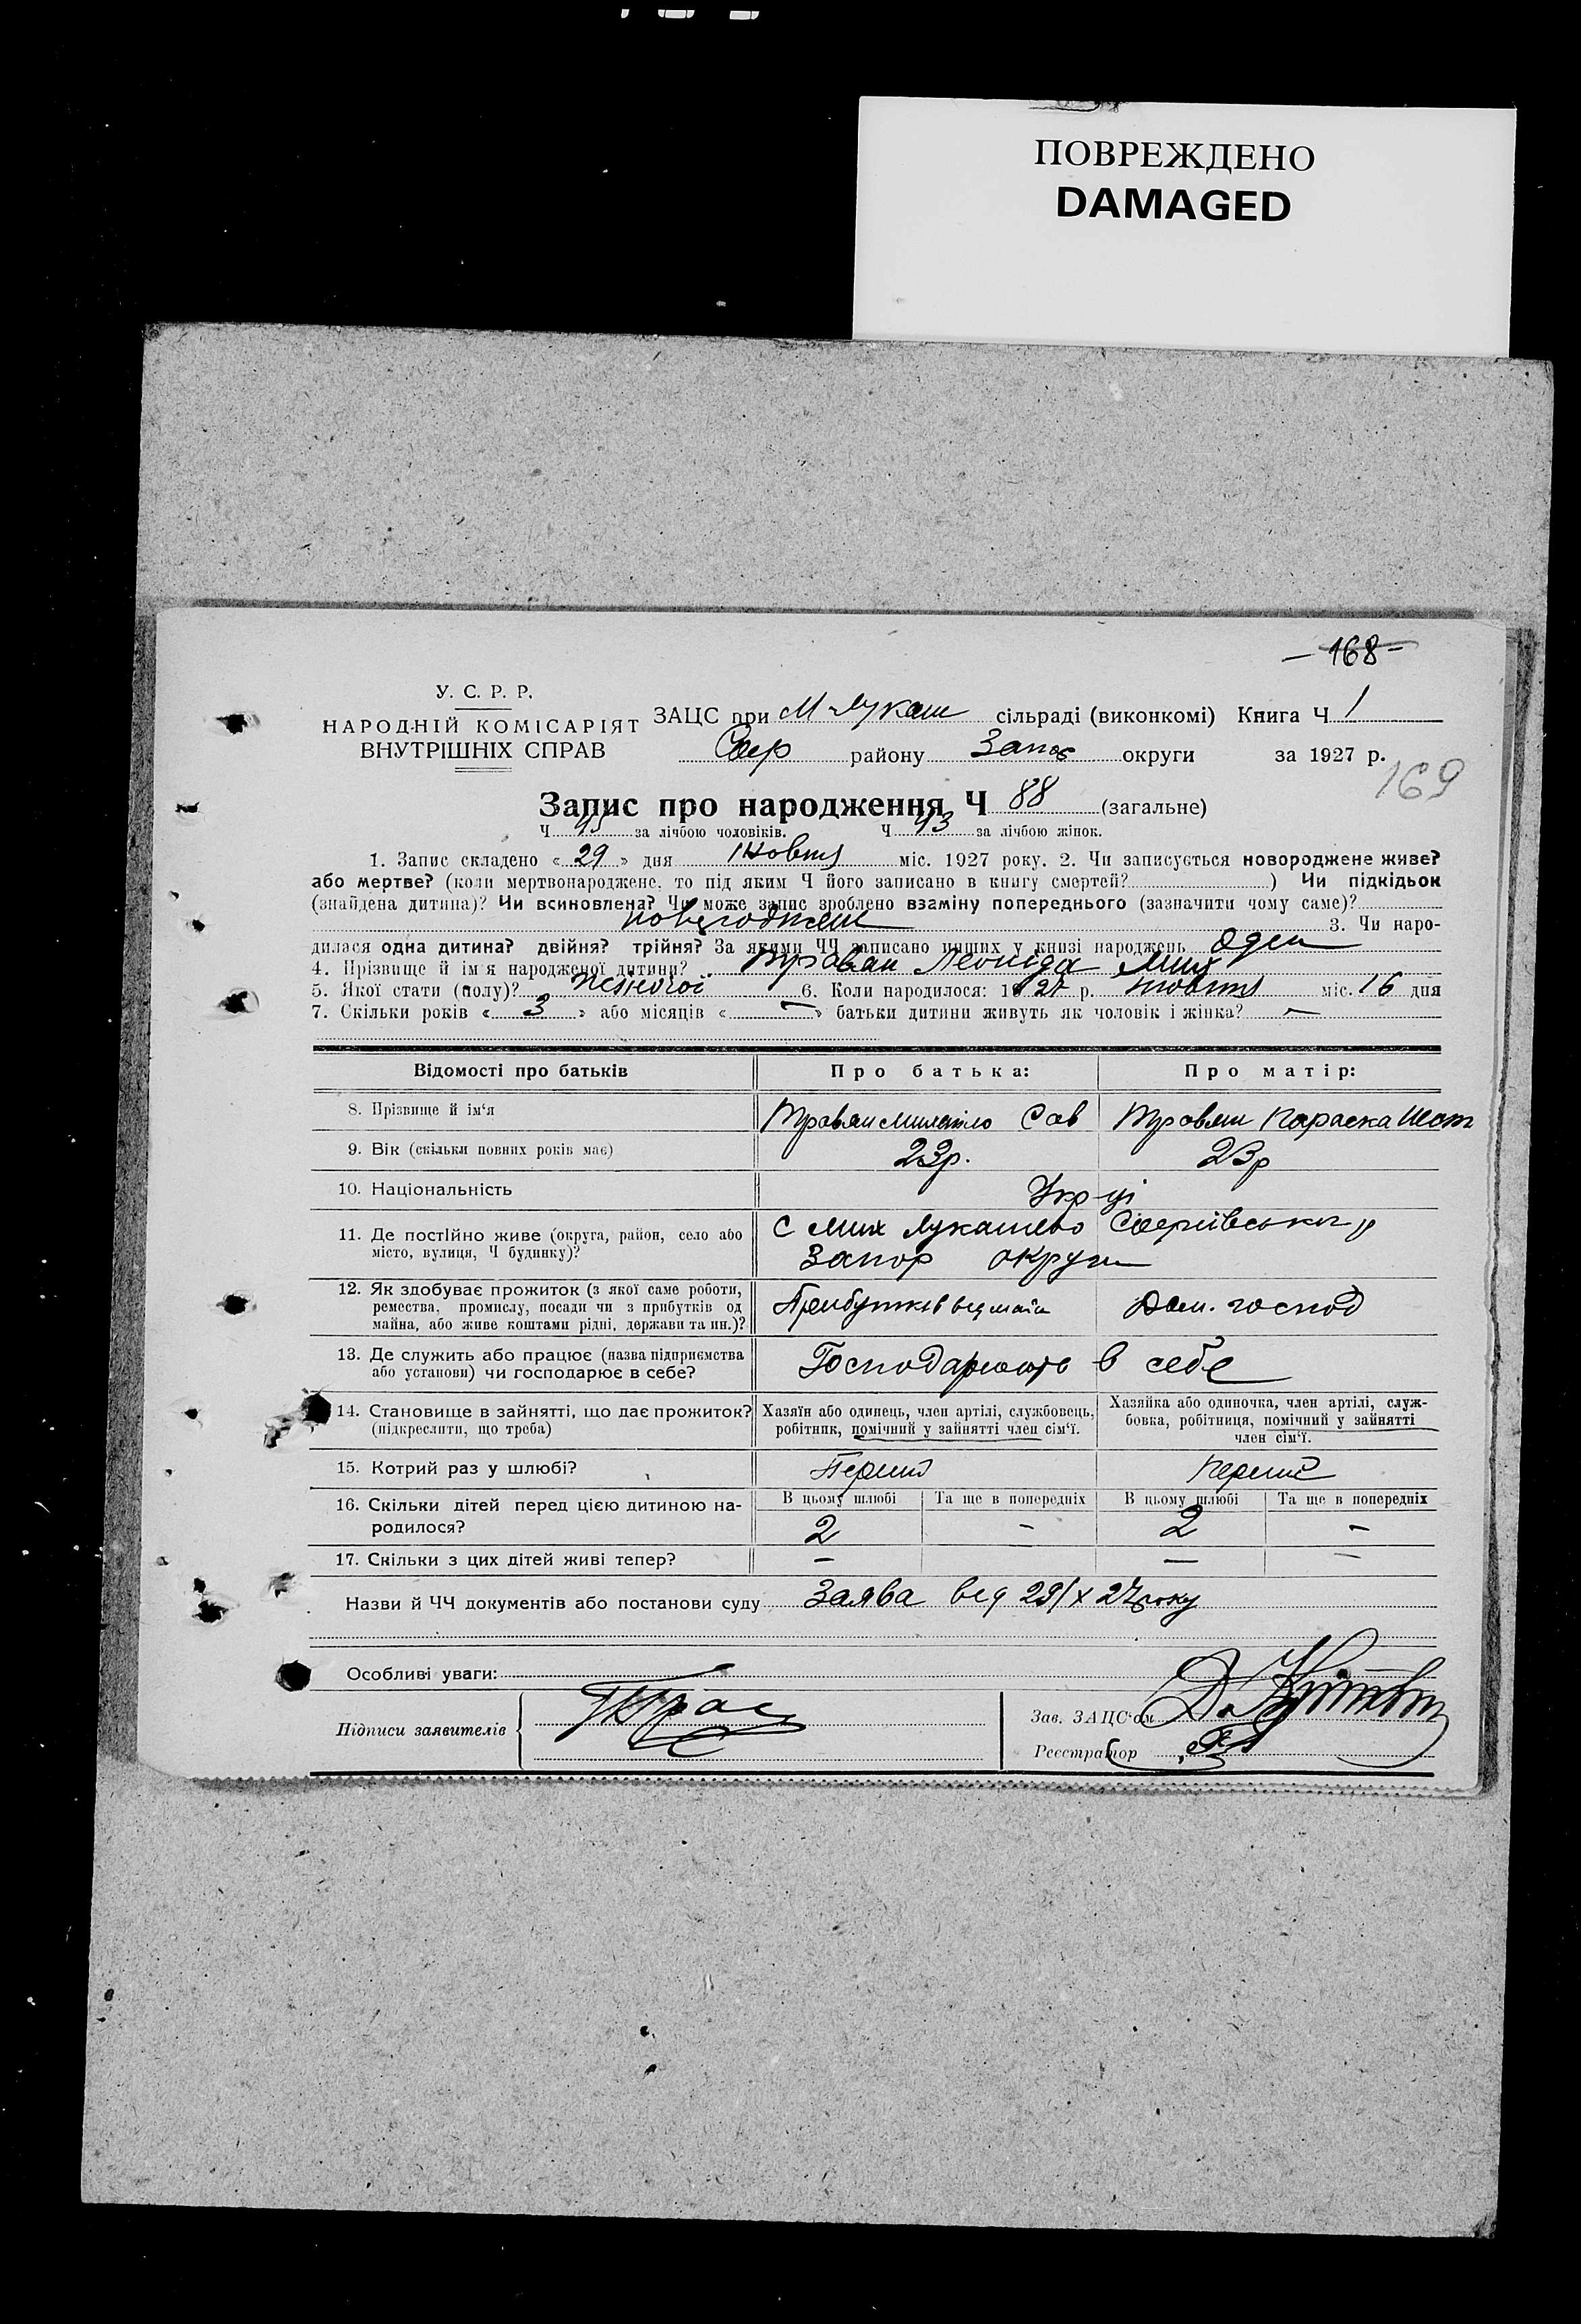 ПОВРЕЖДЕНО
DAMAGED
— 168 —
У. С. Р. Р.
НАРОДНІЙ КОМІСАРІЯТ
ВНУТРІШНІХ СПРАВ
ЗАЦС при М Лукаш сільраді (виконкомі) Книга Ч 1
району Запоє округи за 1927 р.
169
Запис про народження Ч 88 (загальне)
Ч 45 за лічбою чоловіків. Ч 43 за лічбою жінок.
1. Запис складено «29» дня Жовтя міс. 1927 року. 2. Чи записується новороджене живе?
або мертве? (коли мертвонароджене, то під яким Ч його записано в книгу смертей? ) Чи підкідьок
(знайдена дитина)? Чи всиновлена? Чи може запис зроблено взаміну попереднього (зазначити чому саме)?
новороджене 3. Чи наро-
дилася одна дитина? двійня? трійня? За якими ЧЧ записано инших у книзі народжень Оден
4. Прізвище й ім'я народженої дитини? Травян Леонида Мих
5. Якої стати (полу)? 6. Коли народилося: 1927 р. жовтя міс. 16 дня
7. Скільки років «3» або місяців «—» батьки дитини живуть як чоловік і жінка? —
Відомості про батьків Про батька: Про матір:
8. Прізвище й ім'я Травян Михайло Сав Травян Параска Игнт
9. Вік (скільки повних років має) 23р. 23р
10. Національність Укр-ці
11. Де постійно живе (округа, район, село або
місто, вулиця, Ч будинку)? С Мих Лукашево Софиівського р
Запор округи
12. Як здобуває прожиток (з якої саме роботи,
ремества, промислу, посади чи з прибутків од
майна, або живе коштами рідні, держави та ин.)? Прибутків від майн Дом. господ
13. Де служить або працює (назва підприємства
або установи) чи господарює в себе? Господарюють в себе
14. Становище в зайнятті, що дає прожиток?
(підкреслити, що треба)
Хазяїн або одинець, член артілі, службовець,
робітник, помічний у зайнятті член сім'ї.
Хазяйка або одиночка, член артілі, служ-
бовка, робітниця, помічний у зайнятті
член сім'ї.
15. Котрий раз у шлюбі? Перший Перший
16. Скільки дітей перед цією дитиною на-
родилося?
В цьому шлюбі Та ще в попередніх В цьому шлюбі Та ще в попередніх
2 — 2 —
17. Скільки з цих дітей живі тепер? — — —
Назви й ЧЧ документів або постанови суду Заява від 29/X 27 року
Особливі уваги:
Підписи заявителів
Зав. ЗАЦС'ом
Реєстратор